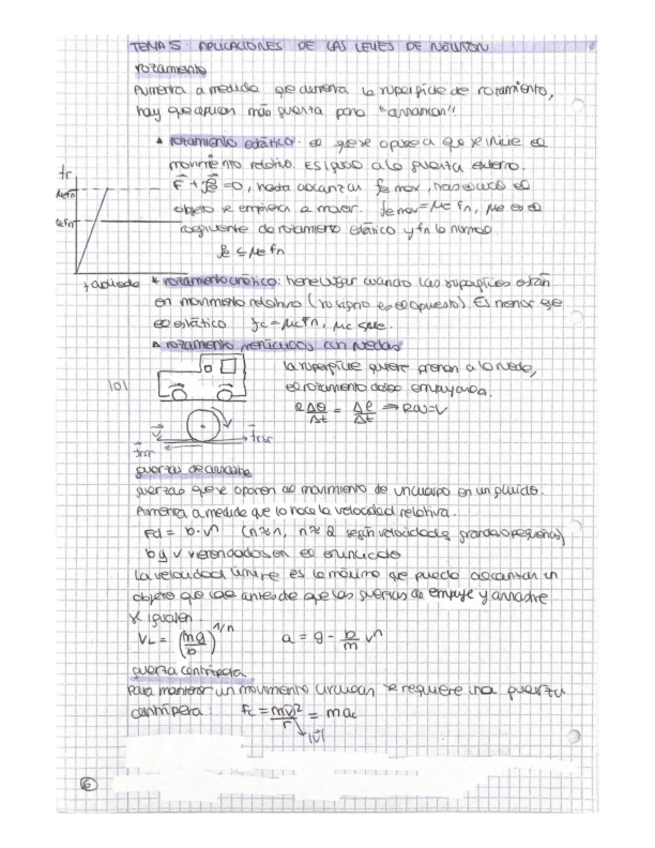 TEMA 5 APLICACIONES DE LAS LEYES DE NEWTON
rozamiento
Aumenta a medida que aumenta la superficie de rozamiento,
hay que aplicar más fuerza para "arrancar".
▲ rozamiento estático: es que se opone a que se inicie el
movimiento relativo. Es igual a la fuerza externa.
F + fe = 0, hasta alcanzar fe max, has el
objeto se empieza a mover. fe max = μe Fn, μe es el
coeficiente de rozamiento estático y fn la normal
fe ≤ μe fn
fr
μeFn
μcFn
F aplicada
* rozamiento cinético: tiene lugar cuando las superficies están
en movimiento relativo (su signo es el opuesto). Es menor que
el estático fc = μc Fn, μc < μe.
▲ rozamiento vehículos con ruedas
la superficie quiere frenar a la rueda,
el rozamiento debe empujarla.
R Δθ/Δt = Δl/Δt ⇒ Rω = V
V
frsr
frsr
fuerzas de arrastre
fuerzas que se oponen al movimiento de un cuerpo en un fluido.
Aumenta a medida que lo hace la velocidad relativa.
Fd = b · vⁿ (n≈1, n≈2 según velocidades grandes o pequeñas)
b y v vienen dados en el enunciado
La velocidad límite es la máxima que puede alcanzar un
objeto que cae antes de que las fuerzas de empuje y arrastre
se igualen.
VL = (mg/b)^1/n a = g - b/m vⁿ
fuerza centrípeta
Para mantener un movimiento circular se requiere una fuerza
centrípeta: Fc = mv²/r = mac
|v|
6